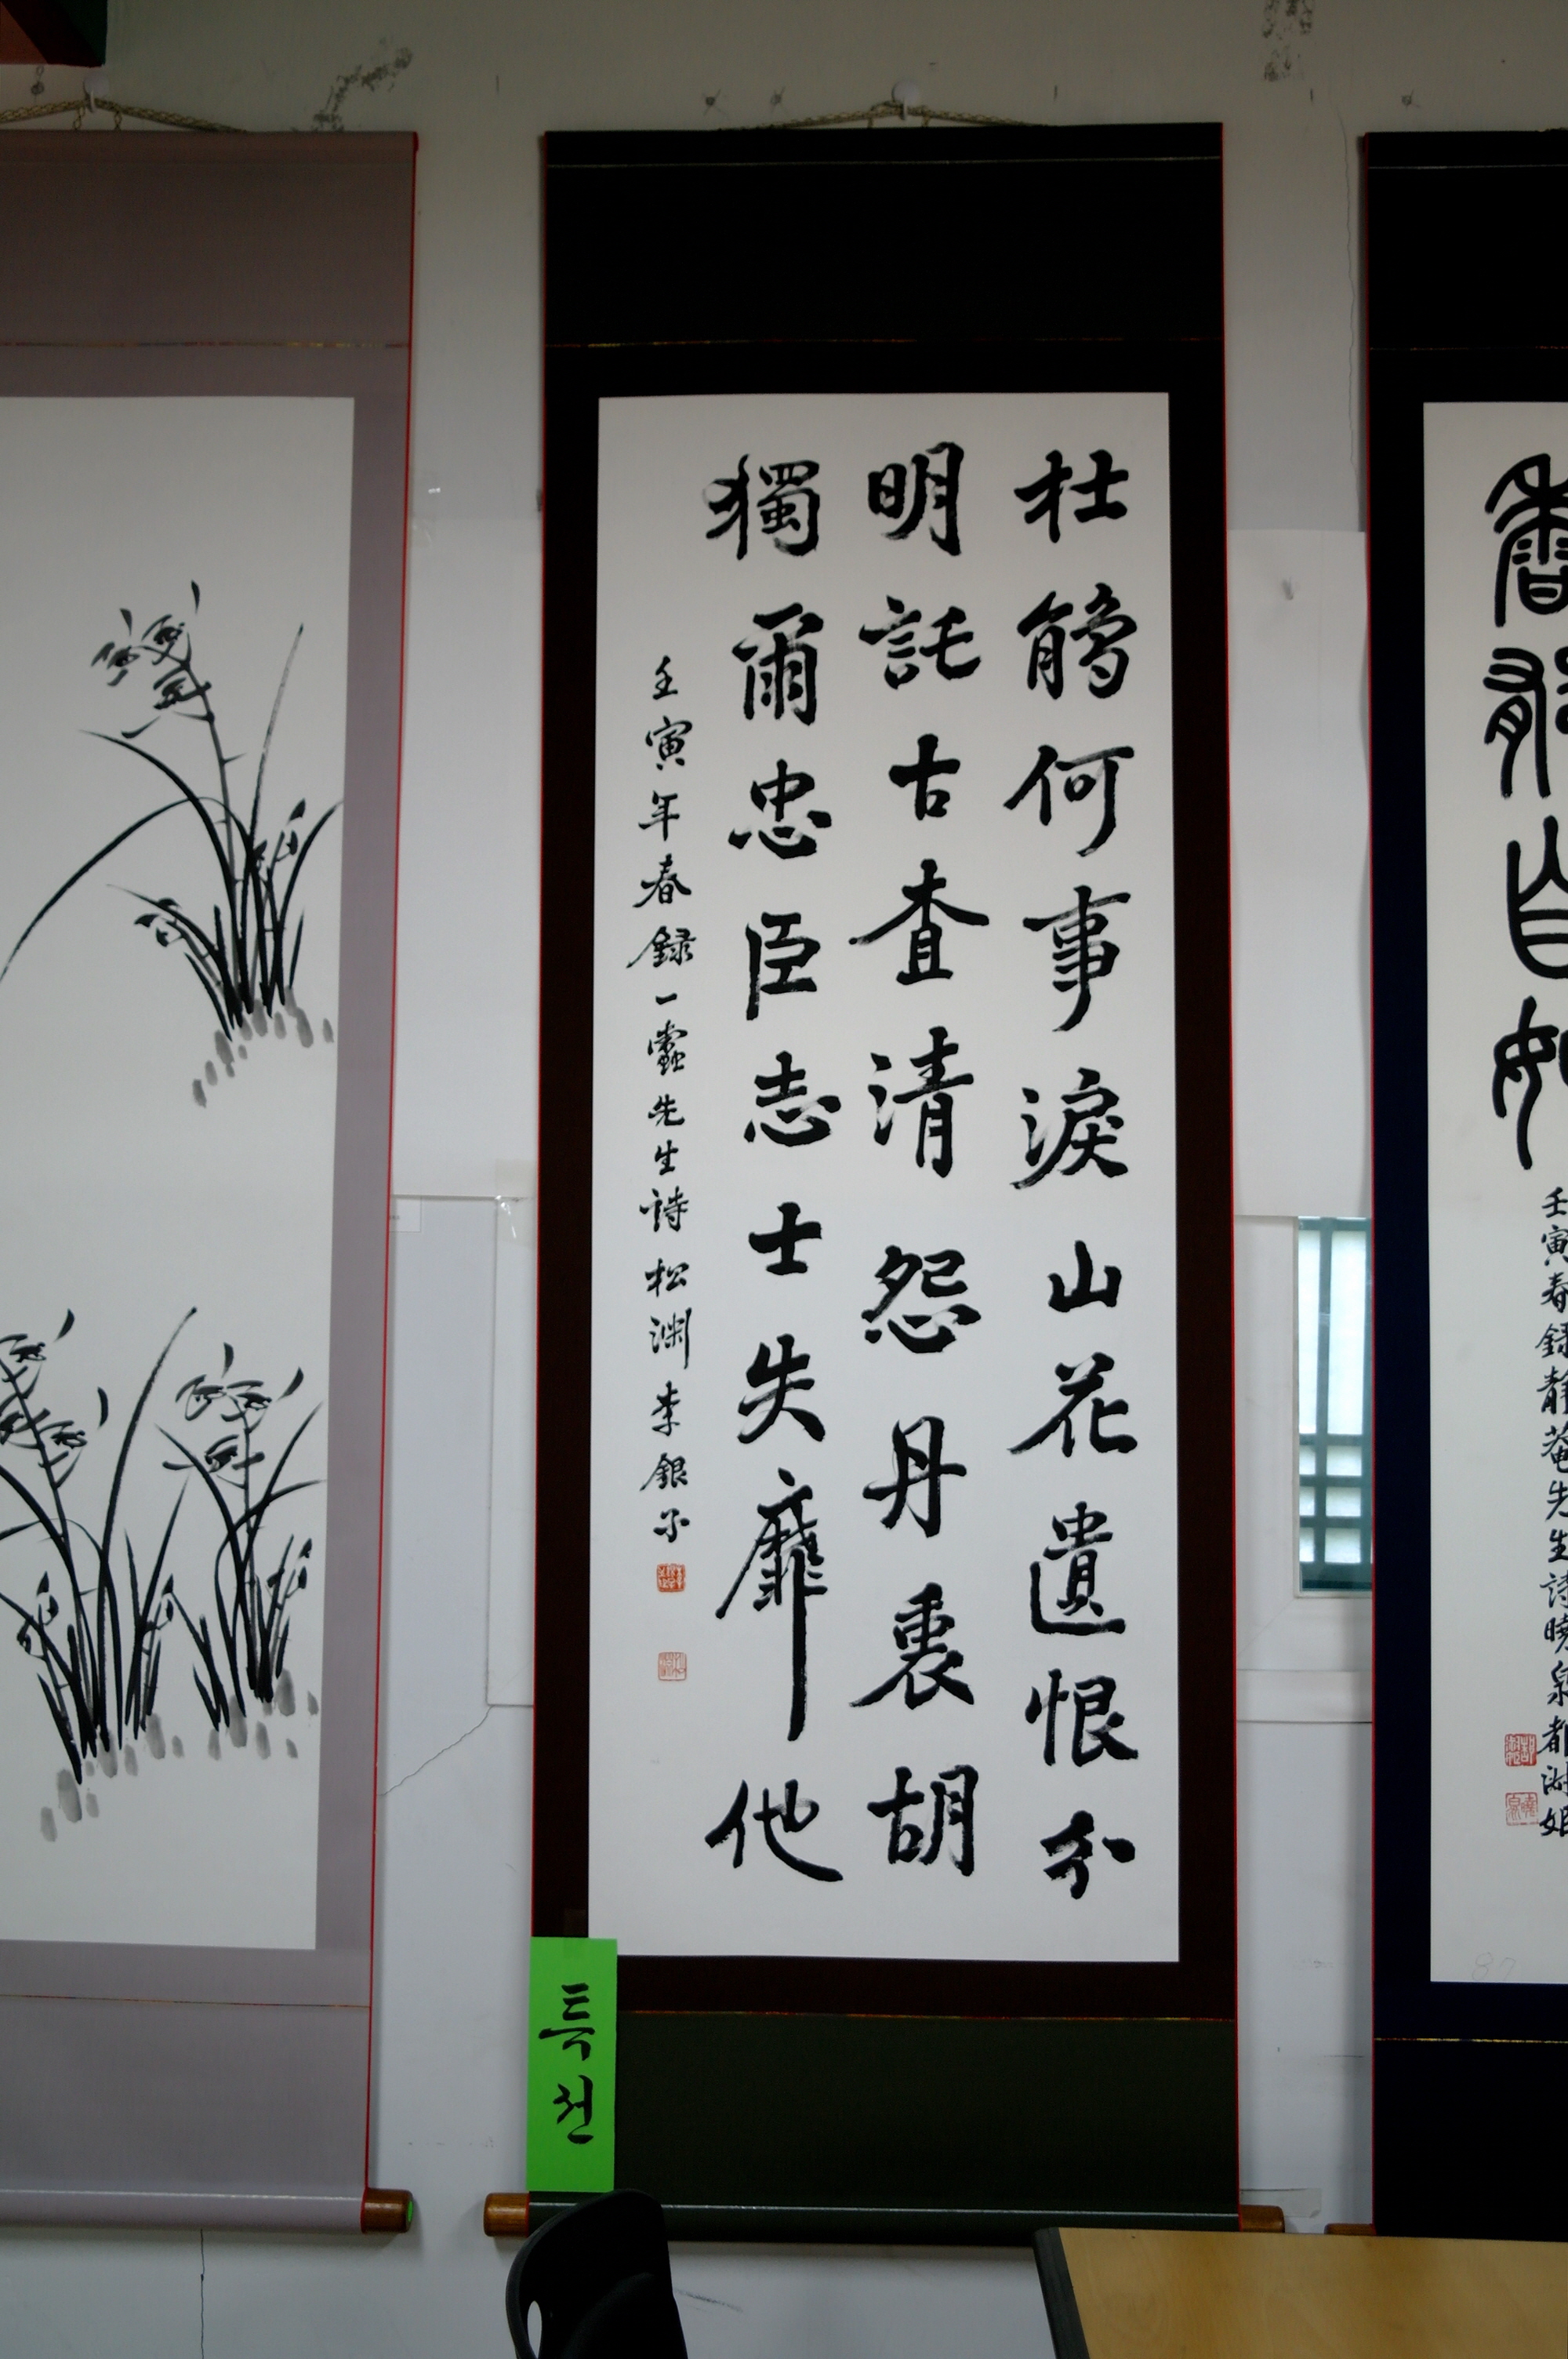 杜鵑何事淚山花遺恨分
明託古查清怨丹衷胡
獨爾忠臣志士失靡他
壬寅年春録一蠹先生詩松淵李銀
특선
自如
壬寅春録靜菴先生詩曉泉都